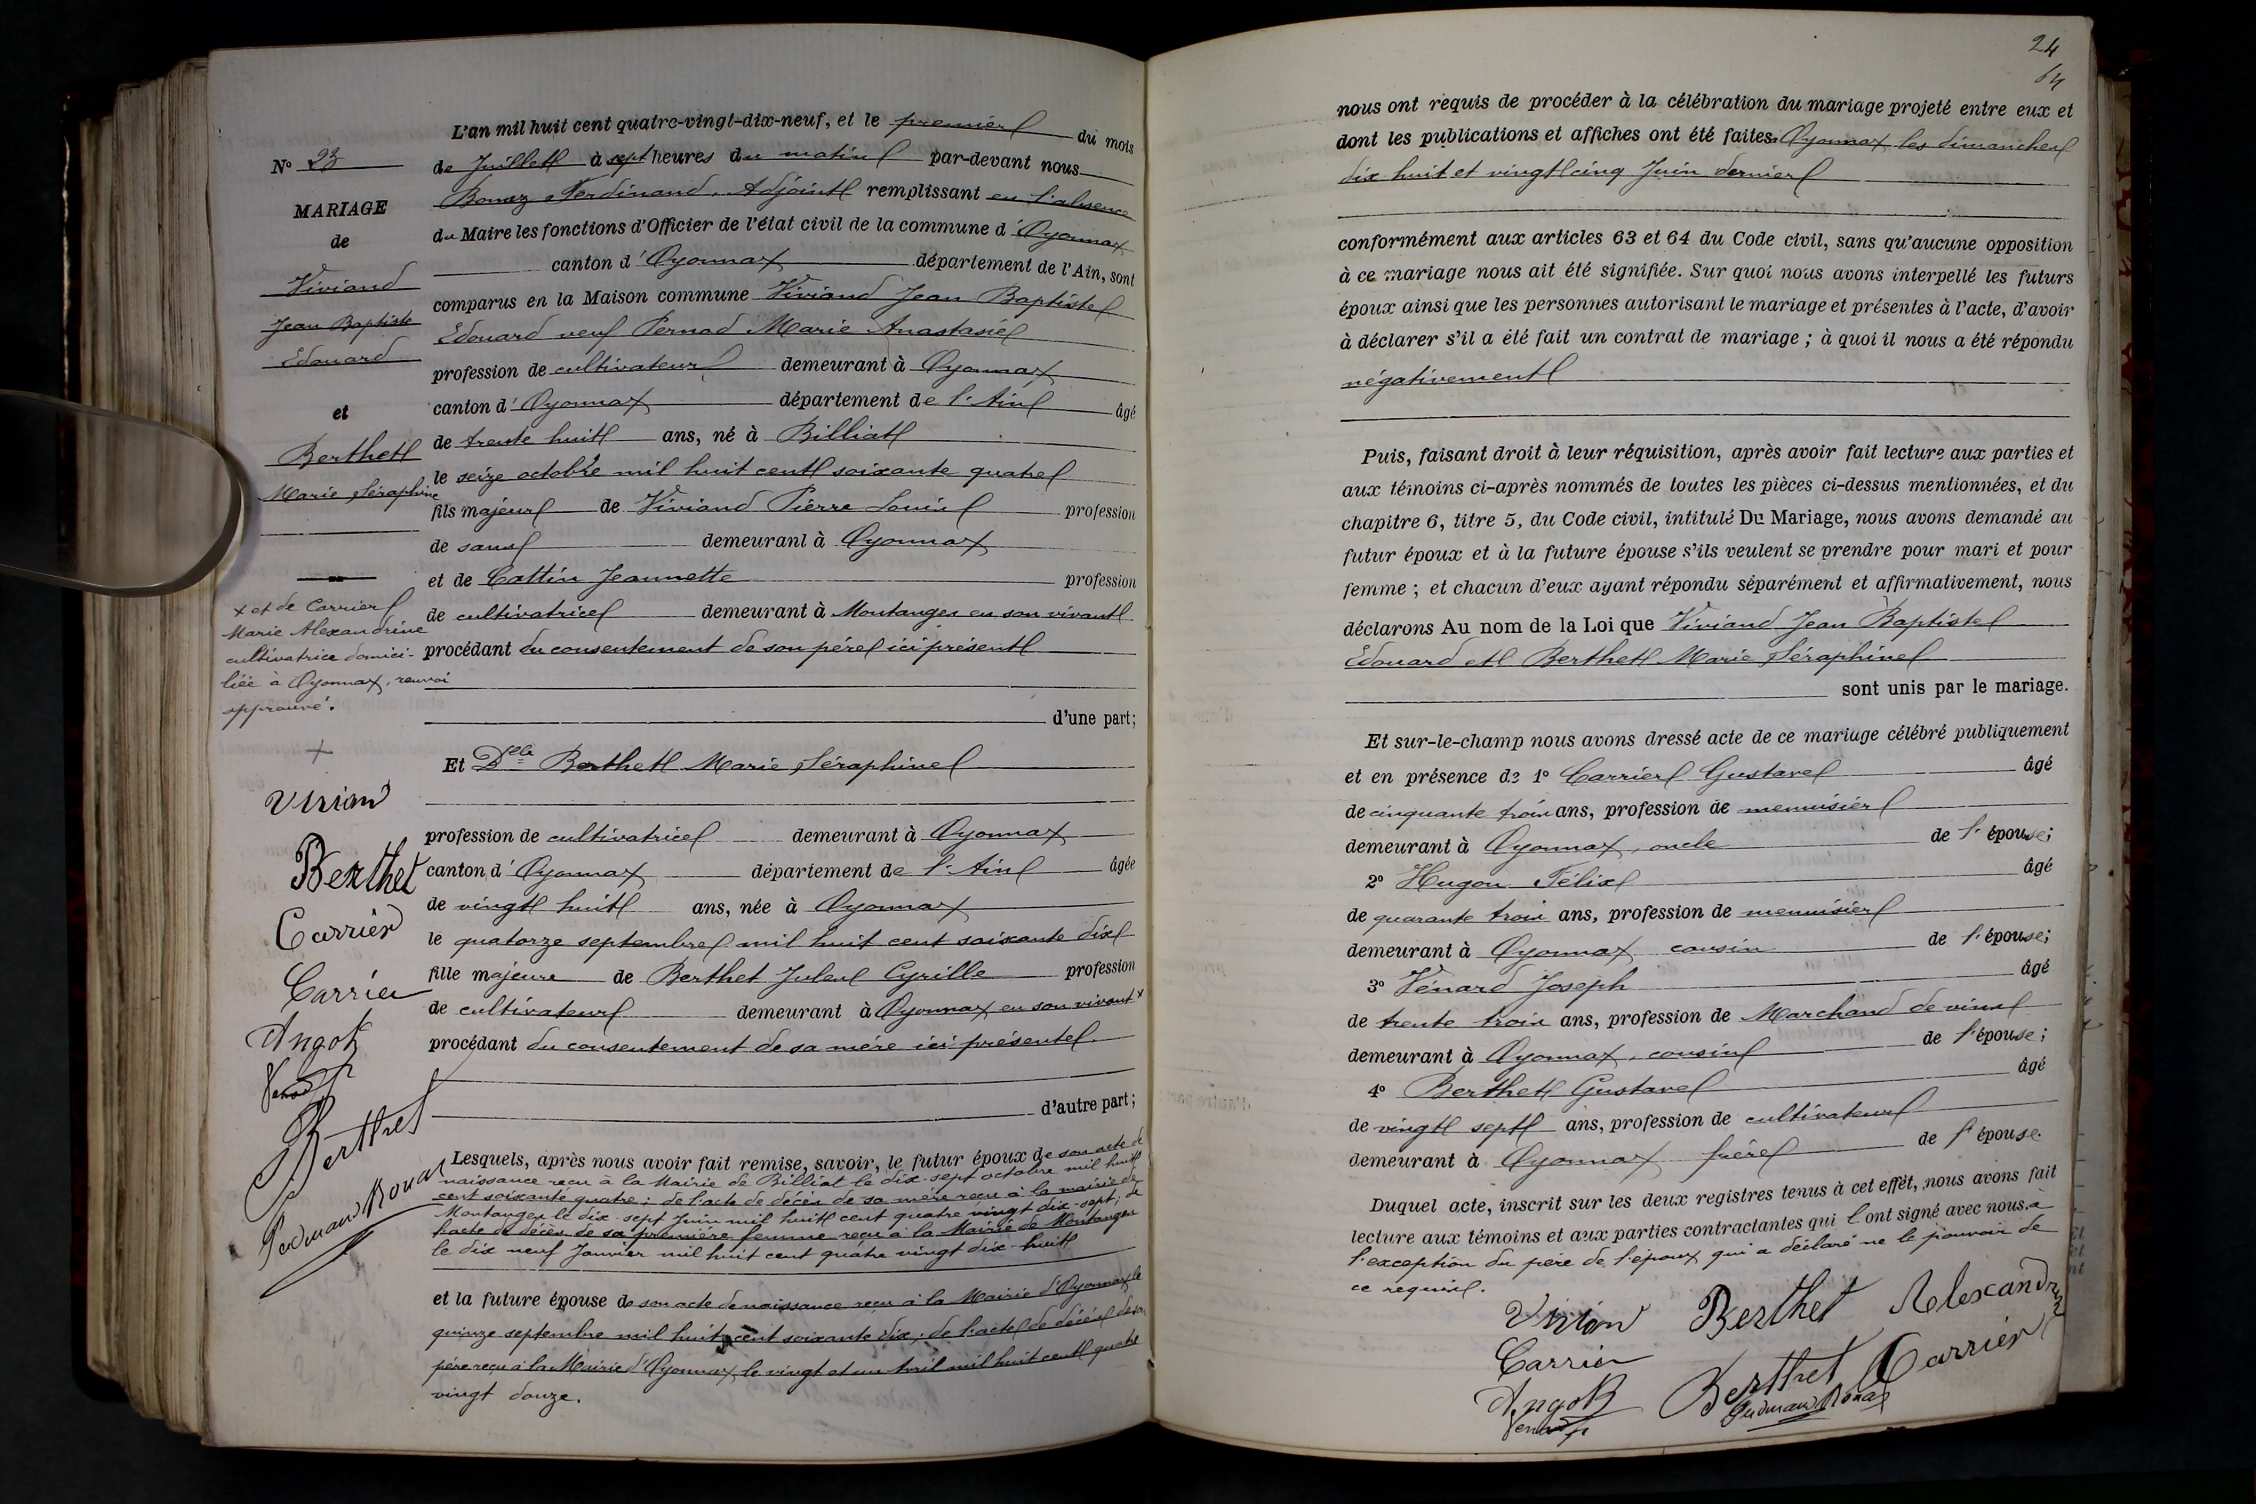 N° 23
MARIAGE
de
Viviand
Jean Baptiste
Edouard
et
Berthet
Marie Séraphine
x et de Carrier
Marie Alexandrine
cultivatrice domici-
liée à Oyonnax, renvoi
approuvé.
+
Vivian
Berthet
Carrier
Carrier
Berthet
L'an mil huit cent quatre-vingt-dix-neuf, et le premier du mois
de Juillet à sept heures du matin par-devant nous
Ferdinand, Adjoint remplissant en l'absence
du Maire les fonctions d'Officier de l'état civil de la commune d'Oyonnax
canton d'Oyonnax département de l'Ain, sont
comparus en la Maison commune Viviand Jean Baptiste
Edouard veuf Pernod Marie Anastasie
profession de cultivateur demeurant à Oyonnax
canton d'Oyonnax département de l'Ain âgé
de trente huit ans, né à Billiat
le seize octobre mil huit cent soixante quatre
fils majeur de Viviand Pierre Louis profession
de sans demeurant à Oyonnax
et de Cattin Jeannette profession
de cultivatrice demeurant à Montanges en son vivant
procédant du consentement de son père ici présent
d'une part;
Et Dlle Berthet Marie Séraphine
profession de cultivatrice demeurant à Oyonnax
canton d'Oyonnax département de l'Ain âgée
de vingt huit ans, née à Oyonnax
le quatorze septembre mil huit cent soixante dix
fille majeure de Berthet Jules Cyrille profession
de cultivateur demeurant à Oyonnax en son vivant x
procédant du consentement de sa mère ici présente
d'autre part;
Lesquels, après nous avoir fait remise, savoir, le futur époux de son acte de
naissance reçu à la Mairie de Billiat le dix-sept octobre mil huit
cent soixante quatre; de l'acte de décès de sa mère reçu à la mairie de
Montanges le dix-sept Juin mil huit cent quatre vingt dix-sept; de
l'acte de décès de sa première femme reçu à la Mairie de Montanges
le dix neuf Janvier mil huit cent quatre vingt dix-huit
et la future épouse de son acte de naissance reçu à la Mairie d'Oyonnax le
quinze septembre mil huit cent soixante dix; de l'acte de décès de son
père reçu à la Mairie d'Oyonnax le vingt et un Avril mil huit cent quatre
vingt douze.
24
64
nous ont requis de procéder à la célébration du mariage projeté entre eux et
dont les publications et affiches ont été faites à Oyonnax les dimanches
dix huit et vingt cinq Juin dernier
conformément aux articles 63 et 64 du Code civil, sans qu'aucune opposition
à ce mariage nous ait été signifiée. Sur quoi nous avons interpellé les futurs
époux ainsi que les personnes autorisant le mariage et présentes à l'acte, d'avoir
à déclarer s'il a été fait un contrat de mariage; à quoi il nous a été répondu
négativement
Puis, faisant droit à leur réquisition, après avoir fait lecture aux parties et
aux témoins ci-après nommés de toutes les pièces ci-dessus mentionnées, et du
chapitre 6, titre 5, du Code civil, intitulé Du Mariage, nous avons demandé au
futur époux et à la future épouse s'ils veulent se prendre pour mari et pour
femme; et chacun d'eux ayant répondu séparément et affirmativement, nous
déclarons Au nom de la Loi que Viviand Jean Baptiste
Edouard et Berthet Marie Séraphine
sont unis par le mariage.
Et sur-le-champ nous avons dressé acte de ce mariage célébré publiquement
et en présence de 1° Carrier Gustave âgé
de cinquante trois ans, profession de menuisier
demeurant à Oyonnax, oncle de l'épouse;
2° Hugon Félix âgé
de quarante trois ans, profession de menuisier
demeurant à Oyonnax cousin de l'épouse;
3° Vénard Joseph âgé
de trente trois ans, profession de Marchand de vins
demeurant à Oyonnax, cousin de l'épouse;
4° Berthet Gustave âgé
de vingt sept ans, profession de cultivateur
demeurant à Oyonnax frère de l'épouse.
Duquel acte, inscrit sur les deux registres tenus à cet effet, nous avons fait
lecture aux témoins et aux parties contractantes qui l'ont signé avec nous à
l'exception du père de l'époux qui a déclaré ne le pouvoir de
ce requis.
Vivian Berthet Alexandrine
Carrier Berthet Carrier